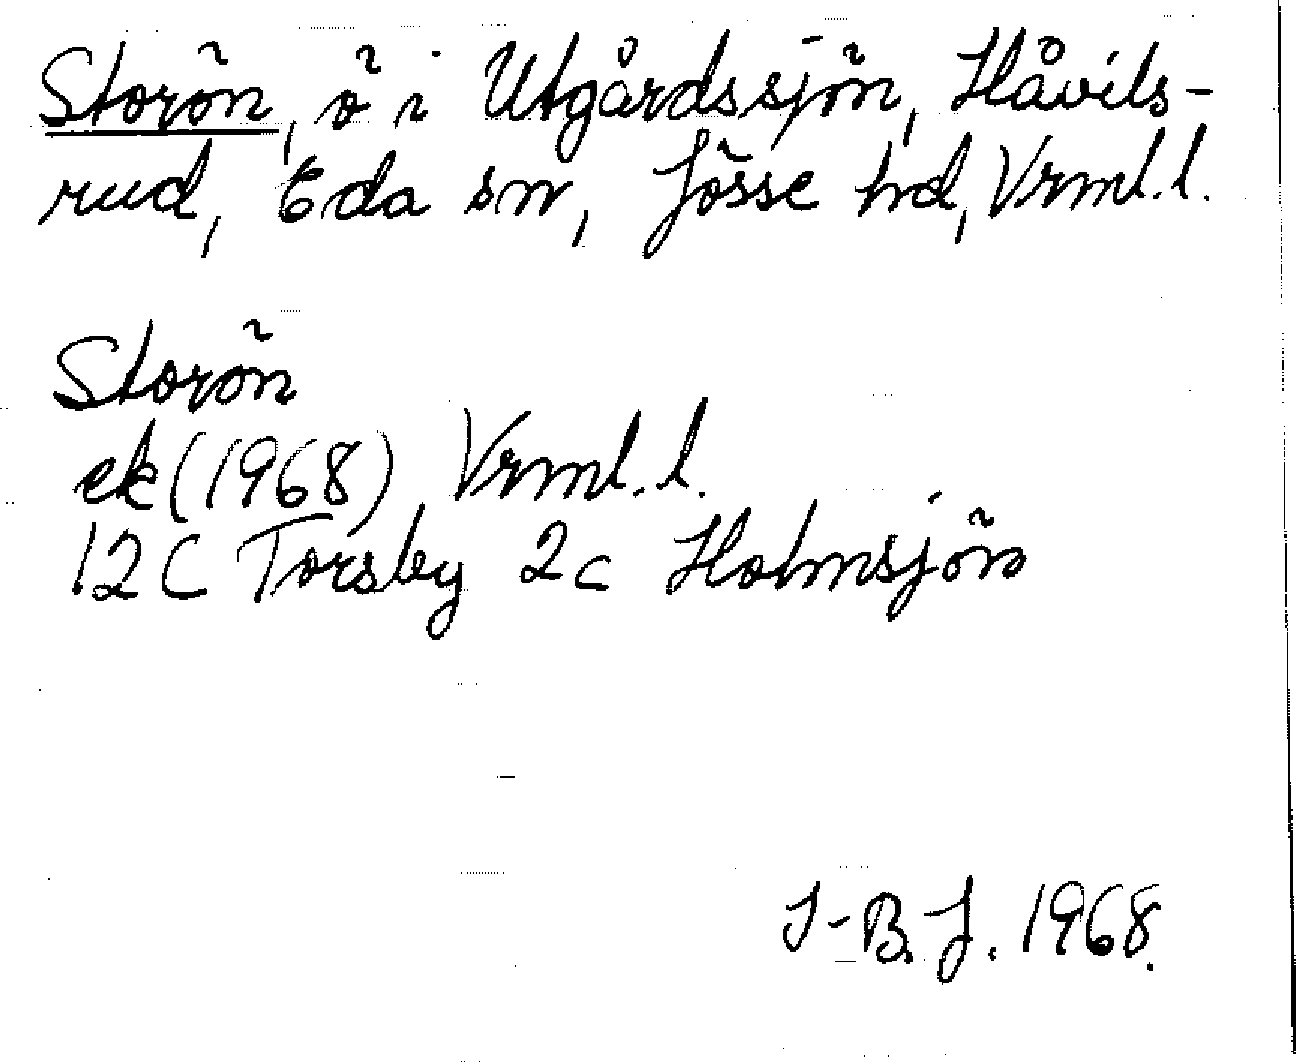 Storön, ö i Utgårdssjön, Håvils-
rud, Eda sn, Jösse hd, Vrml. l.
Storön
ek (1968) Vrml. l.
12C Torsby 2c Holmsjön
I-B. J. 1968.